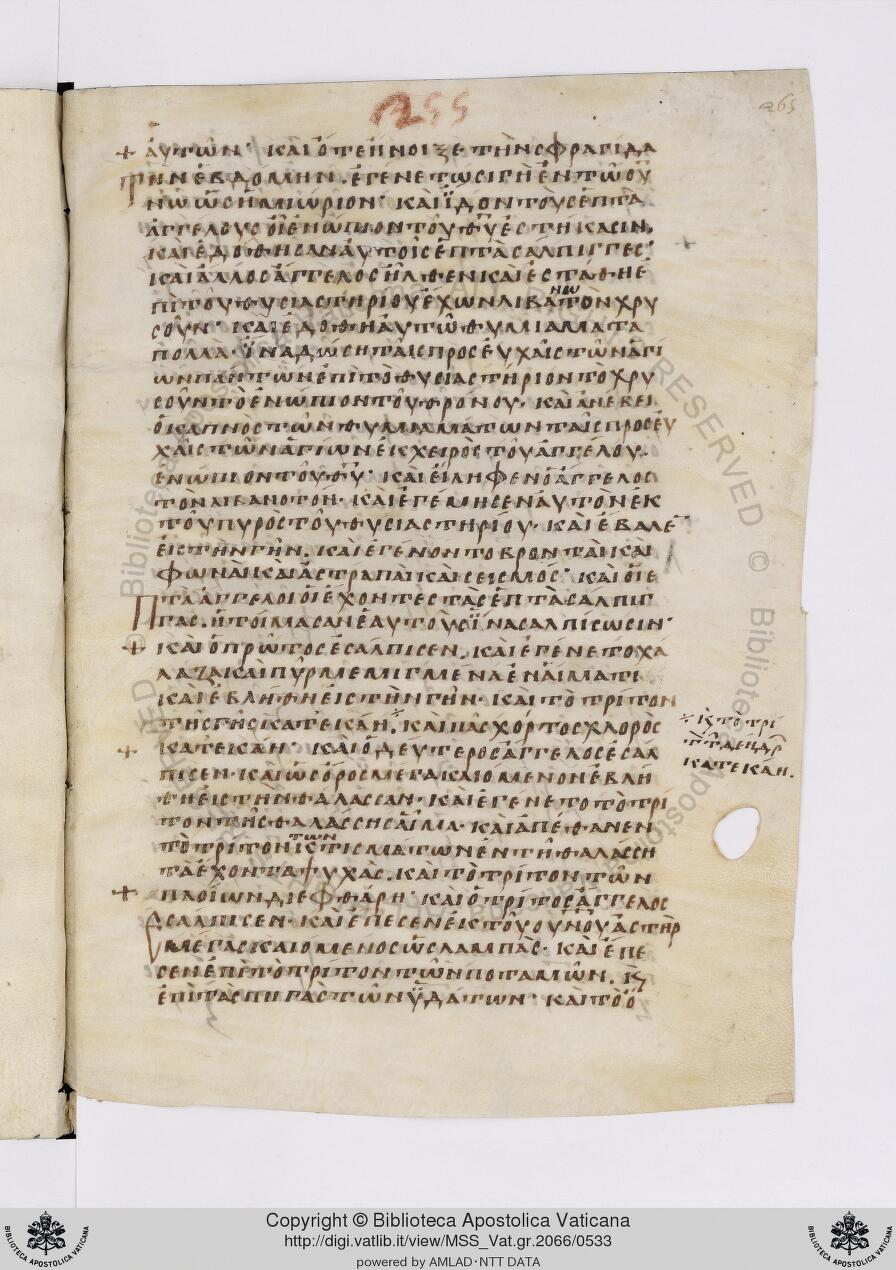 255
265
ἀυτῶν· καὶ ὅτε ἤνοιξε τὴν σφραγίδα
τὴν ἑβδόμην. ἐγένετω σιγὴ ἐν τῶ ου̅
νῶ ὡς ἡμιώριον· καὶ ἴδον τοὺς ἑπτὰ
ἀγγέλους οἳ ἐνώπιον του θ̅υ̅ ἑστήκασιν,
καὶ ἐδόθησαν ἀυτοῖς ἑπτὰ σάλπιγγες·
καὶ ἄλλος ἄγγελος ἦλθεν καὶ εστάθη ἐ
πὶ του θυσιαστηρίου ἔχων λιβανωτὸν χρυ
σοῦν· καὶ ἐδόθη ἀυτῶ θυμιάματα
πολλὰ· ἵνα δώση ταῖς προσευχαῖς τῶν ἁγί
ων πάντων ἐπὶ τὸ θυσιαστήριον το χρυ
σοῦν τὸ ἐνώπιον τοῦ θρόνου· καὶ ἀνέβει
ὁ καπνὸς τῶν θυμιαμάτων ταῖς προσευ
χαῖς τῶν ἁγίων ἐκ χειρὸς τοῦ ἀγγέλου.
ἐνώπιον τοῦ θ̅υ̅· καὶ εἴληφεν ὁ ἄγγελος
τὸν λιβανοτὸν· καὶ ἐγέμησεν ἀυτὸν ἐκ
τοῦ πυρὸς τοῦ θυσιαστηρίου· καὶ ἔβαλε̅
εἰς τὴν γῆν. καὶ ἐγένοντο βρονταὶ καὶ
φωναὶ καὶ ἀστραπαὶ καὶ σεισμός· καὶ οἱ ἑ
πτὰ ἄγγελοι οἱ ἔχοντες τὰς ἑπτὰ σάλπιγ
γας. ἡτοίμασαν ἑαυτοὺς ἵνα σαλπίσωσιν·
καὶ ὁ πρῶτος ἐσάλπισεν. καὶ ἐγένετο χά
λαζα καὶ πῦρ μεμιγμένα ἐν αἵματι.
καὶ ἐβλήθη εἰς τὴν γῆν· καὶ τὸ τρίτον
τῆς γῆς κατεκάη. καὶ πᾶς χόρτος χλορὸς
κατεκάη· καὶ ὁ δεύτερος ἄγγελος ἐσάλ
πισεν· καὶ ὡς ὄρος μέγα καιόμενον ἐβλή
θη εἰς τὴν θάλασσαν· καὶ ἐγένετο τὸ τρί
τον τῆς θαλάσσης αἷμα· καὶ ἀπέθανεν
τὸ τρίτον τῶν κτισμάτων ἐν τῆ θαλάσση
τὰ ἔχοντα ψυχάς. καὶ τὸ τρίτον τῶν
πλοίων διεφθάρη· καὶ ὁ τρίτος ἄγγελος
ἐσάλπισεν· καὶ ἔπεσεν ἐκ τοῦ ου̅νοῦ ἀστὴρ
μέγας καιόμενος ὡς λαμπάς· καὶ ἔπε
σεν ἐπὶ τὸ τρίτον τῶν ποταμῶν. κ̀
ἐπὶ τὰς πηγὰς τῶν ὑδάτων· καὶ τὸ ὄ
κ̀ τὸ τρί
τ̅ τ̅ δένδρ̅
κατεκάη.
Copyright © Biblioteca Apostolica Vaticana
http://digi.vatlib.it/view/MSS_Vat.gr.2066/0533
powered by AMLAD·NTT DATA